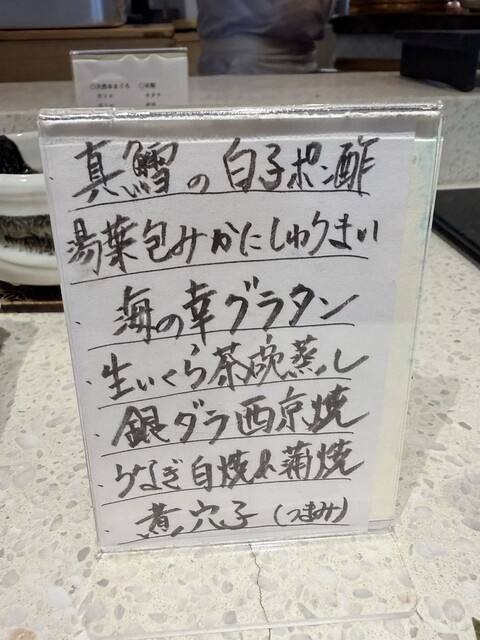 〇天然本まぐろ 〇水ダコ
真鱈の白子ポン酢
湯葉包みかにしゅうまい
海の幸グラタン
・生いくら茶碗蒸し
・銀ダラ西京焼
・うなぎ白焼&蒲焼
・煮穴子(つまみ)